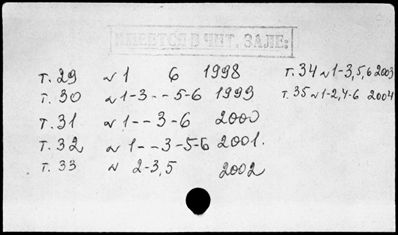 ИМЕЕТСЯ В ЧИТ. ЗАЛЕ:
т. 29 № 1 6 1998
т. 30 № 1-3--5-6 1999
т. 31 № 1--3-6 2000
т. 32 № 1--3-5-6 2001.
т. 33 № 2-3,5 2002
т. 34 № 1-3,5,6 2003
т. 35 № 1-2,4-6 2004